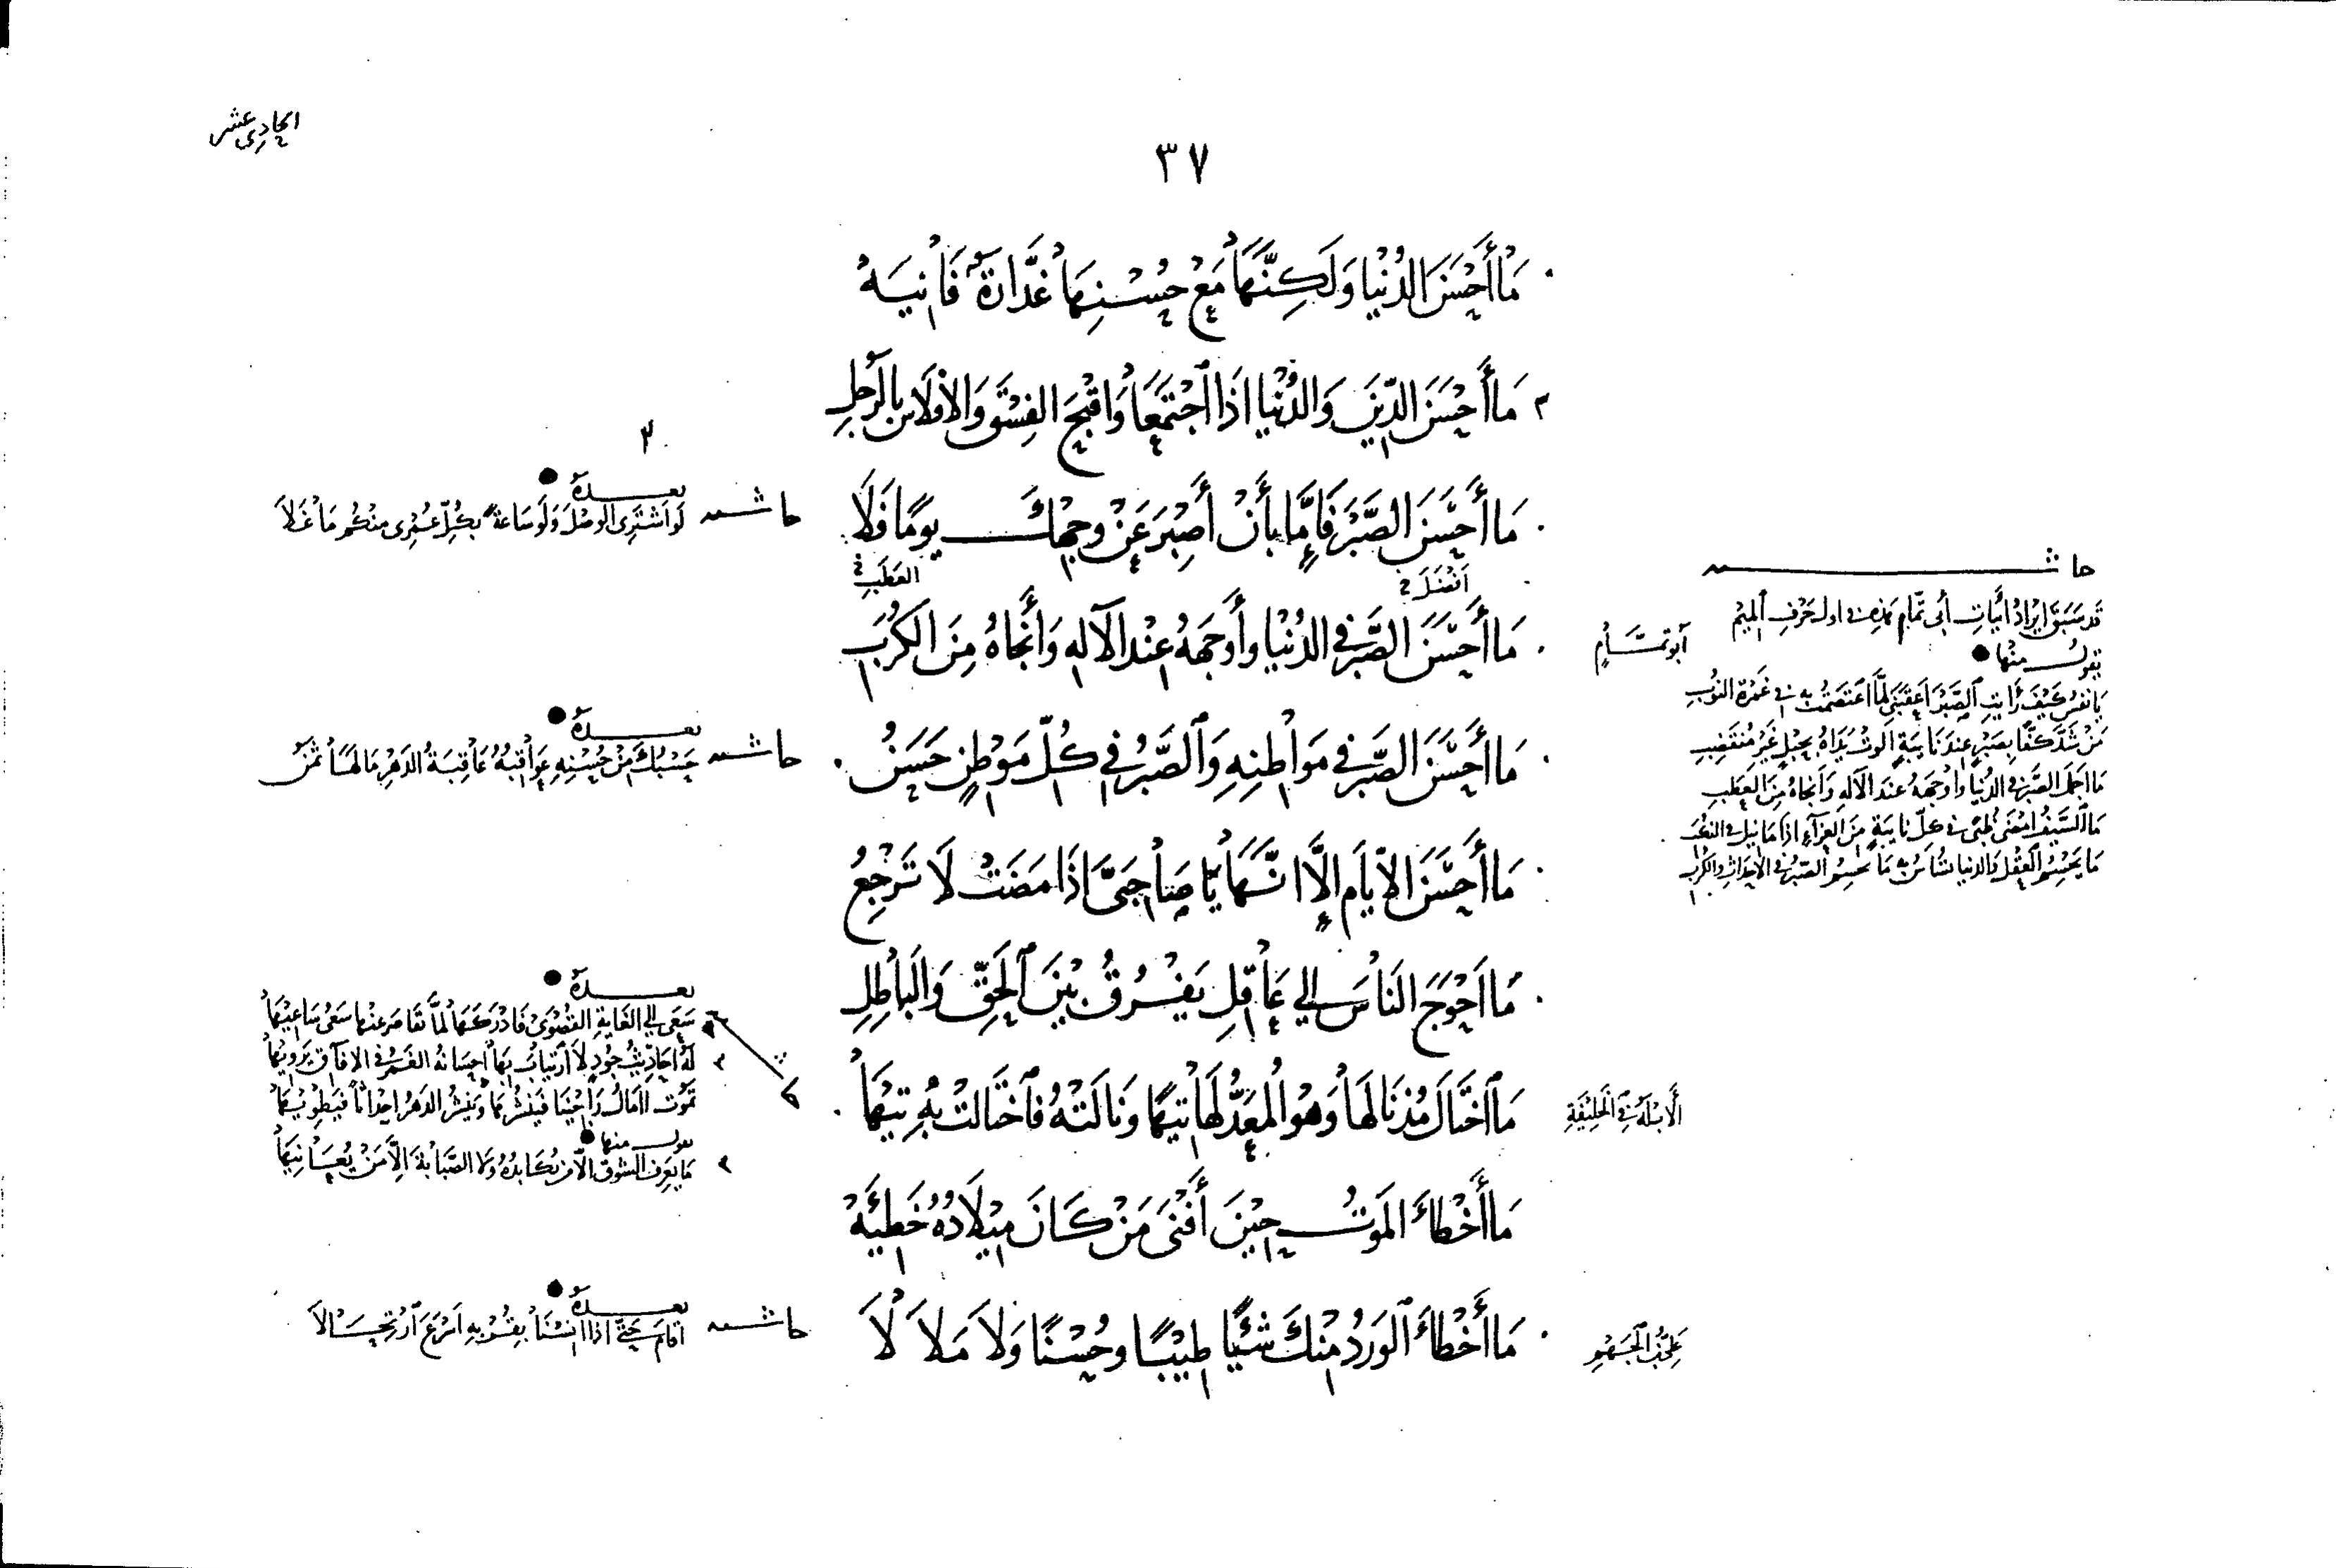 الحادي عشر
٣٧
مَا أَحْسَنَ الدُّنْيَا وَلَكِنَّهَا مَعْ حُسْنِهَا غَدَّارَةٌ فَانِيَهْ
مَا أَحْسَنَ الدِّينَ وَالدُّنْيَا اذَا اجْتَمَعَا وَاقْبَحَ الفِسْقَ وَالافلَاسَ بِالرَجلِ
مَا أَحْسَنَ الصَّبْرَ فَإِمَّا بِأَنْ أَصْبِرَ عَنْ وجهِكَ يومًا فَلَا
حاشـــه
بعـــدهُ
لَو اشْتَرِى الوصْلَ وَلَو سَاعةً بكُلِّ عُمْرِى مِنْكُم مَا غَلَا
اَفْضَلَ
العَطَبِ
مَا أَحْسَنَ الصَّبْرَ فِي الدُنْيَا وأَوجَهَهُ عِنْدَ الآلهِ وَأَنجَاهُ مِنَ الكُرَبِ
أبو تمَّــامٍ
حاشـــه
قَد سَبَقَ ايْرَادُ ابْيَاتِ أبى تمَّامٍ هَذِهِ فى اول حَرْفِ الميْم
يقول منها
يَا نفسُ كَيْفَ رَايتِ الصَّبْرَ اَعقَبَنى لمَّا اعتَصَمْتُ بهِ فى غَمْرَة النوُبِ
مَنْ شَدَّ كَفًّا بصَبْرٍ عندَ نَايبَةٍ الوتْ يَدَاهُ بحبْلٍ غَيرِ مُنقَضِبِ
مَا اجمَلَ الصَّبْرَ فى الدُنيا واوجَهَهُ عندَ الآلهِ وَانجَاهُ مِنَ العَطَبِ
مَا السَّيفُ امْضَى ظُبًى فى كلِّ نايبَةٍ مِنَ العَزآءِ اذَا مَا نيلَ فى
مَا يَحسُنُ العَقْلُ وَالدنيا تُسَاسُ بهِ مَا يحسُنُ الصَّبْرُ فى الاحْدَاثِ والكُرَبِ
مَا أَحْسَنَ الصَّبْرَ فِي مَوَاطِنِهِ وَالصَّبْرُ فِي كُلِّ مَوْطِنٍ حَسَنُ
حاشـــه
بعـــدهُ
حَسْبُكَ مِنْ حُسْنِهِ عَوَاقِبُهُ عَاقِبَةُ الدَهْرِ مَا لهَا ثمَنُ
مَا أَحْسَنَ الأيَّام إلَّا انَّهَا يَا صَاحِبَيَّ اذَا مَضَتْ لَا تَرْجِعُ
مَا احْوَجَ النَّاسَ الي عَاقِلِ يَفْرُقُ بَيْنَ الحَقِّ وَالبَاطِلِ
مَا اخْتَالَ مُذ نَالهَا وَهْوَ المُعَدُّ لَهَا تِيهًا وَنَالَتْهُ فَاخْتَالَتْ بِهِ تِيهَا
الأبْلَهُ فِى الخَلِيفَةِ
بعـــدهُ
سَعَى الي الغَايةِ القُصْوَى فَادْرَكَهَا لمَّا تقَاصَرَ عنْها سَعْىُ سَاعِيْهَا
لَهُ احَادِيثُ جُودٍ لَا ارتيابَ بهَا احِسَانهُ الغَمْرُ فى الافآقِ يَرويْهَا
تمُوت امَالُ رَاجِيْنَا فَيَنشُرُهَا وَيَنشُرُ الدَهْرُ احْدَاثًا فَيَطْوِيْهَا
يقول منها
مَا يَعرِفُ الشوقَ الَّا مَن يُكَابدُهُ وَلا الصَّبَابةَ الَّا مَنْ يُعَانِيْهَا
مَا أَخْطاءَ المَوتُ حِيْنَ أَفْنَى مَنْ كَانَ مِيْلَادُهُ خَطِيْئَهْ
مَا أَخْطاءَ الوَردُ مِنْكَ شَيْئًا طِيْبًا وحُسْنًا وَلاَ مَلاَلَا
عَلىُّ بنُ الجَهْمِ
حاشـــه
بعـــدهُ
اقامَ حَتَّى اذَا انِسْنَا بقُرْبهِ اَسْرَعَ ارْتِحَالَا